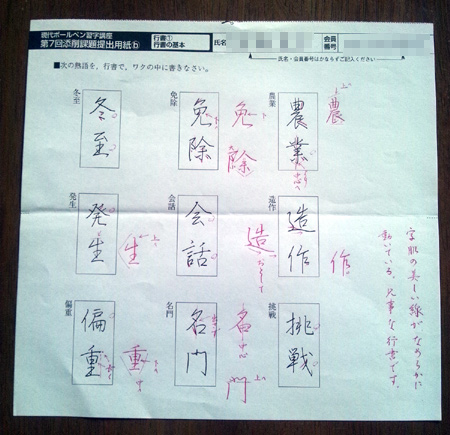 現代ボールペン習字講座
第7回添削課題提出用紙ⓑ
行書①
行書の基本
氏名
会員
番号
氏名・会員番号はかならずご記入ください
■次の熟語を、行書で、ワクの中に書きなさい。
農業
農業
農
免除
免除
免
除
冬至
冬至
造作
造作
造
作
会話
会話
発生
発生
生
挑戦
挑戦
名門
名門
名
中心
門
偏重
偏重
重
字肌の美しい線がなめらかに
動いている。見事な行書です。